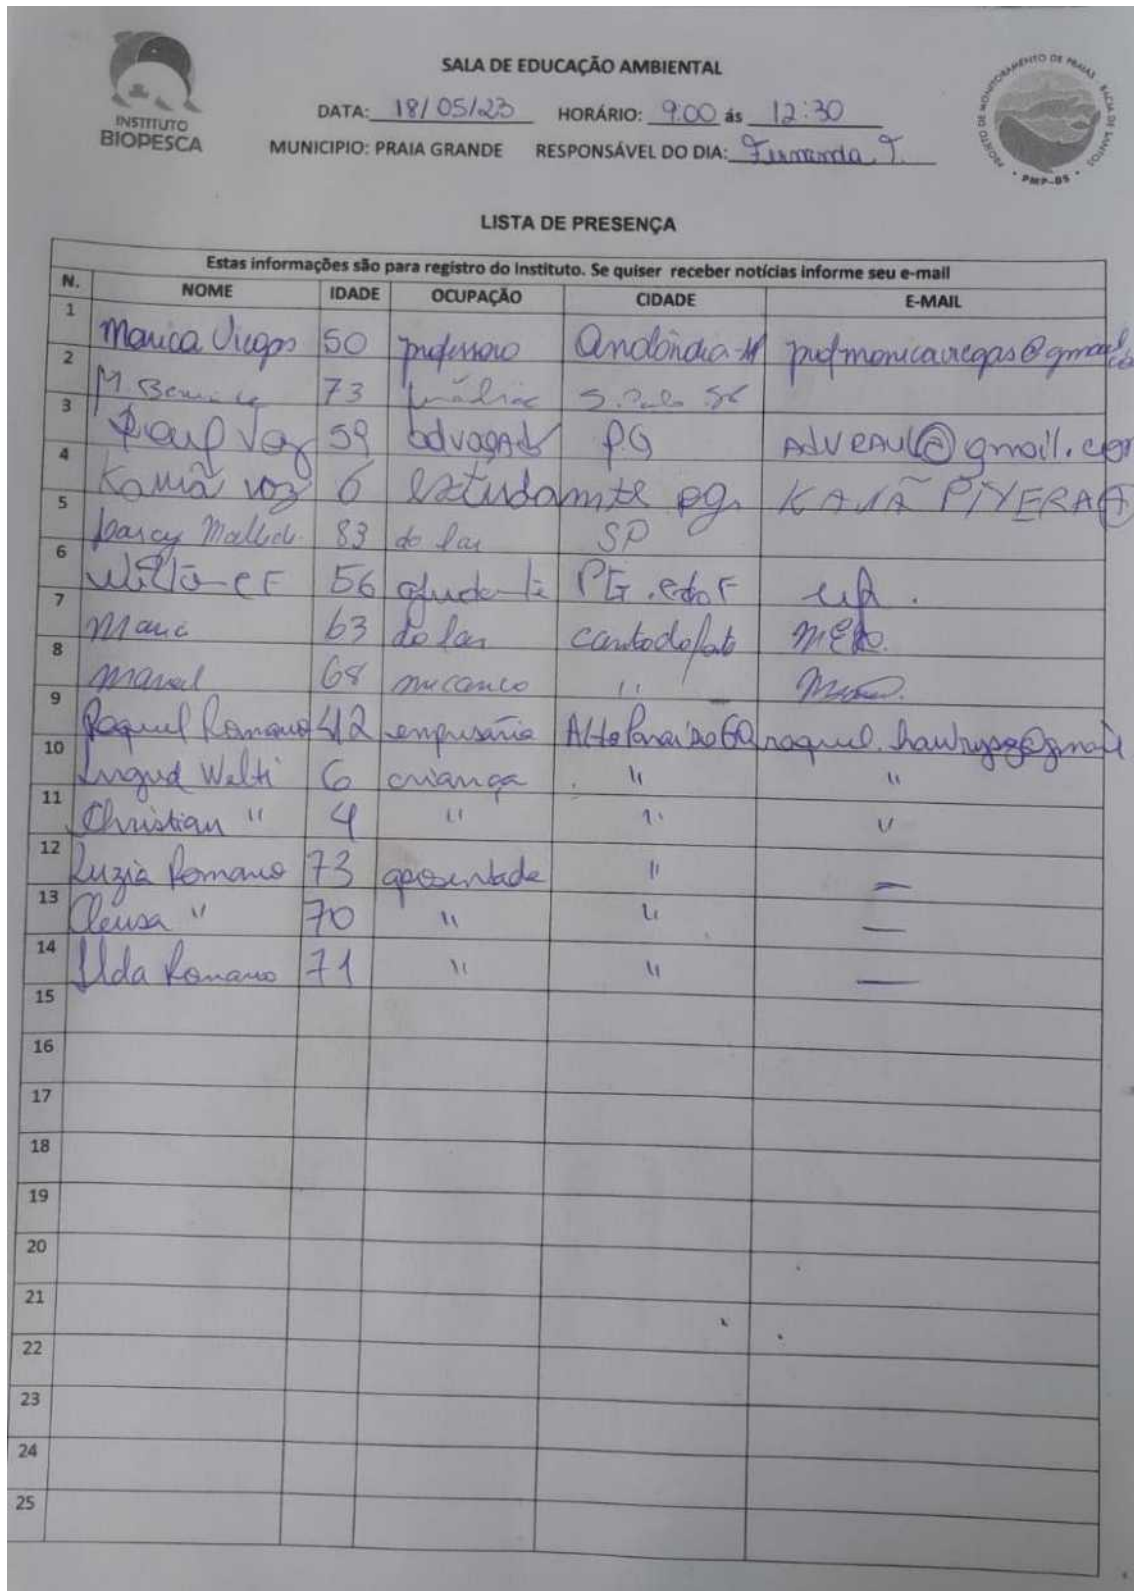 INSTITUTO
BIOPESCA
SALA DE EDUCAÇÃO AMBIENTAL
DATA: 18/05/23 HORÁRIO: 9:00 ás 12:30
MUNICIPIO: PRAIA GRANDE RESPONSÁVEL DO DIA: Fernanda T.
PROJETO DE MONITORAMENTO DE PRAIAS BACIA DE SANTOS
PMP-BS
LISTA DE PRESENÇA
Estas informações são para registro do Instituto. Se quiser receber notícias informe seu e-mail
N. NOME IDADE OCUPAÇÃO CIDADE E-MAIL
1 Viegas 50 profmonicaviegas@gmail.co
2 M 73 S.
3 Raul Vaz 59 advogado PG ADVRAUL@gmail.com
4 Kauã Vaz 6 estudante pg.
5 Darcy 83 do lar SP
6 56
7 Maria 63 do lar
8 68 mecanico "
9 Raquel Romano 42 empresária Alto Paraíso GO
10 Welti 6 criança " "
11 Christian " 4 " " "
12 Luzia Romano 73 aposentada " —
13 Cleusa " 70 " " —
14 Ilda Romano 71 " " —
15
16
17
18
19
20
21
22
23
24
25